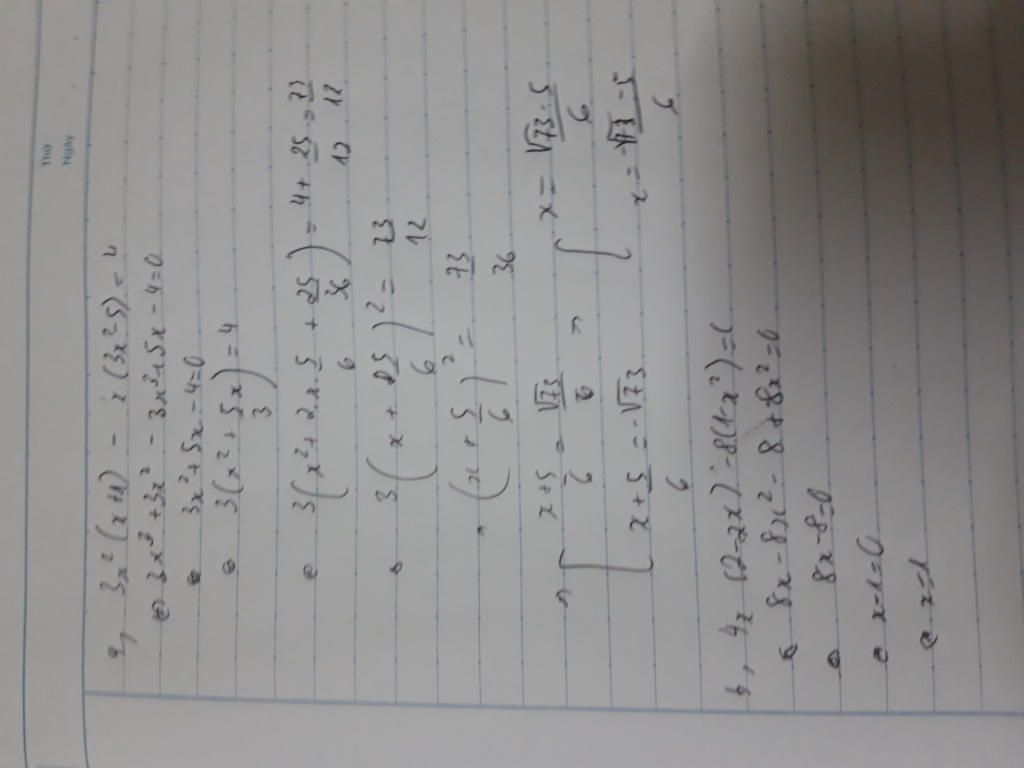 Thứ
Ngày
a, 3x²(x+1) - x(3x²-5) = 4
⇔ 3x³ + 3x² - 3x³ + 5x - 4 = 0
⇔ 3x² + 5x - 4 = 0
⇔ 3(x² + 5x/3) = 4
⇔ 3(x² + 2x.5/6 + 25/36) = 4 + 25/12 = 73/12
⇔ 3(x + 25/6)² = 73/12
⇔ (x + 5/6)² = 73/36
⇒ [ x + 5/6 = √73/6 ⇒ [ x = √73-5/6
x + 5/6 = -√73/6 x = -√73-5/6
b, 4x(2-2x) - 8(1-x²) = 0
⇔ 8x - 8x² - 8 + 8x² = 0
⇔ 8x - 8 = 0
⇔ x - 1 = 0
⇔ x = 1